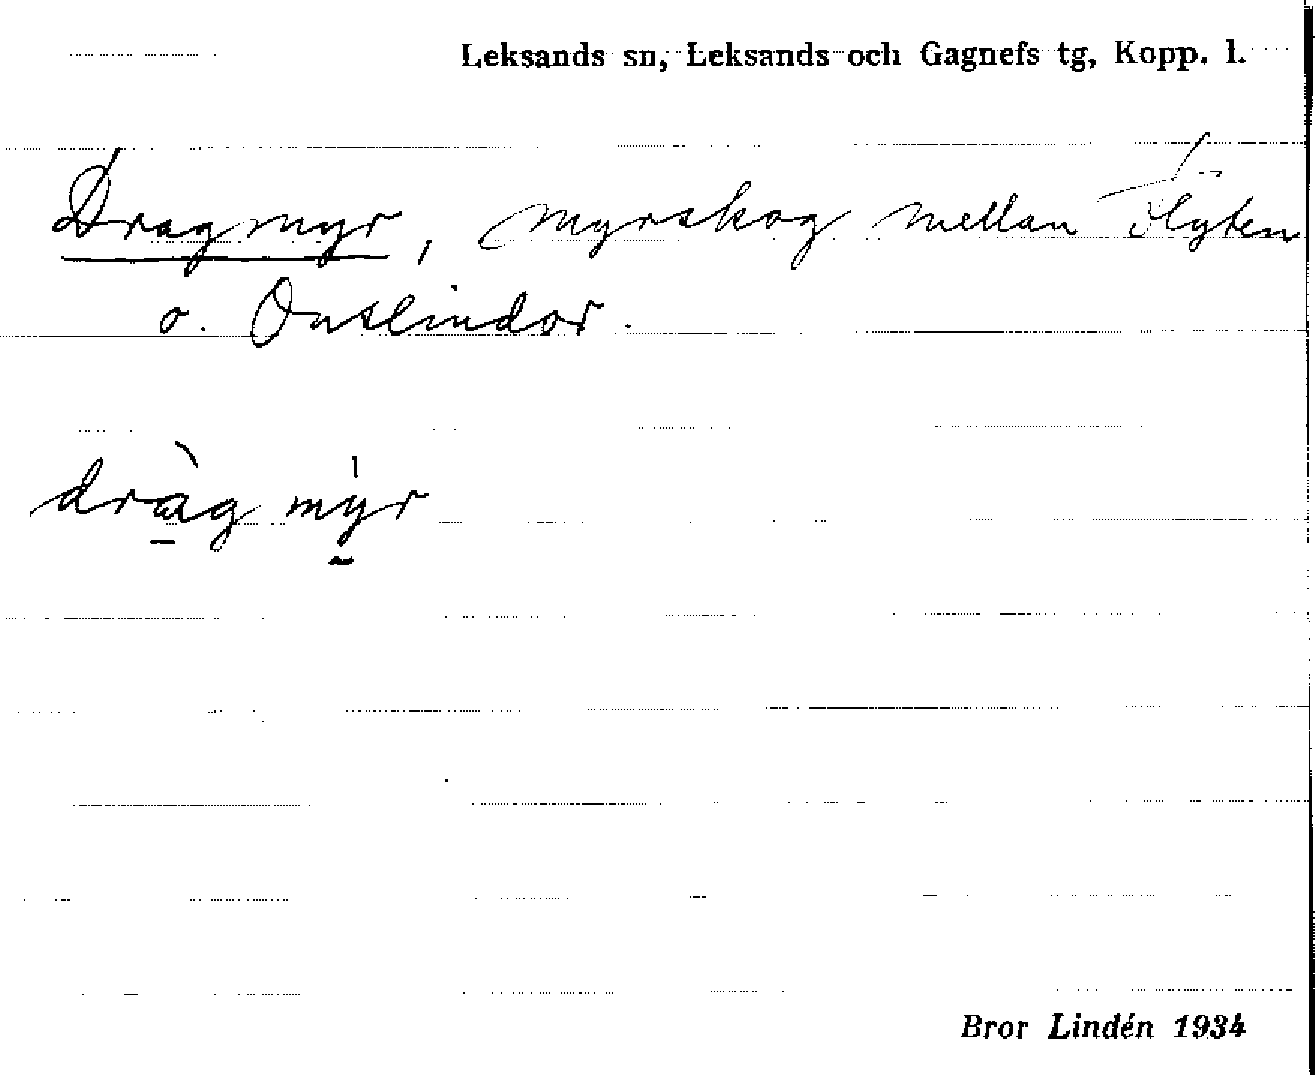 Leksands sn, Leksands och Gagnefs tg, Kopp. l.
Dragmyr, myrskog mellan
o.
dràg myr
Bror Lindén 1934